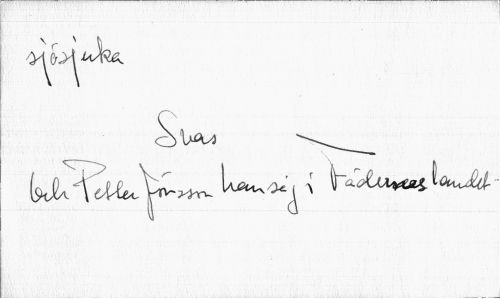 sjösjuka
Svas
och Petter Jönsson han seg i Fäderneslandet